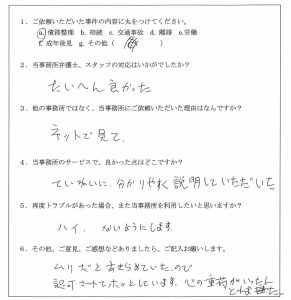 1．ご依頼いただいた事件の内容に丸をつけてください。
a. 債務整理 b. 相続 c. 交通事故 d. 離婚 e.労働
f. 成年後見 g. その他（ ）
2．当事務所弁護士、スタッフの対応はいかがでしたか？
たいへん良かった
3．他の事務所ではなく、当事務所にご依頼いただいた理由はなんですか？
ネットで見て、
4．当事務所のサービスで、良かった点はどこですか？
ていねいに、分かりやすく説明していただいた
5．再度トラブルがあった場合、また当事務所を利用したいと思いますか？
ハイ、ないようにします。
6．その他、ご意見、ご感想などありましたら、ご記入お願いします。
ムリだとあきらめていたので
認可されてホッとしています。心の重荷が